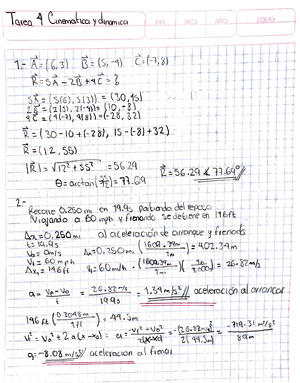 Tarea 4 Cinematica y dinamica
DIA MES AÑO FOLIO
1.- A=(6,3) B=(5,-4) C=(-7,8)
R=5A-2B+4C=?
5A=(5(6),5(3))=(30,15)
2B=(2(5),2(-4))=(10,-8)
4C=(4(-7),4(8))=(-28,32)
R=(30-10+(-28), 15-(-8)+32)
R=(12,55)
|R|=√12²+55² =56.29
θ=arctan(55/12)=77.69 R=56.29 ∡ 77.69°
2.-
Recorre 0.250 mi en 19.9s partiendo del reposo
Viajando a 60 mph y frenando se detiene en 146ft
Δx=0.250 mi aceleración de arranque y frenado
t=19.9s
V₀=0m/s Δx=0.250m (1609.34m/1mi)=402.34m
V₁=60mph
Δx₂=146ft V₁=60mi/h (1609.34m/1mi)(1h/3600s)=26.82m/s
a=V₁-V₀/t = 26.82m/s/19.9s = 1.34m/s² // aceleración al arrancar
146ft (0.3048m/1ft)=44.5m
V₁²=V₀²+2a(x-x₀)= a=-V₁²+V₀²/2(x-x₀) = -(26.82m/s)²/2(44.5m) = -719.31m²/s²/89m
a=-8.08m/s² // aceleracion al frenar